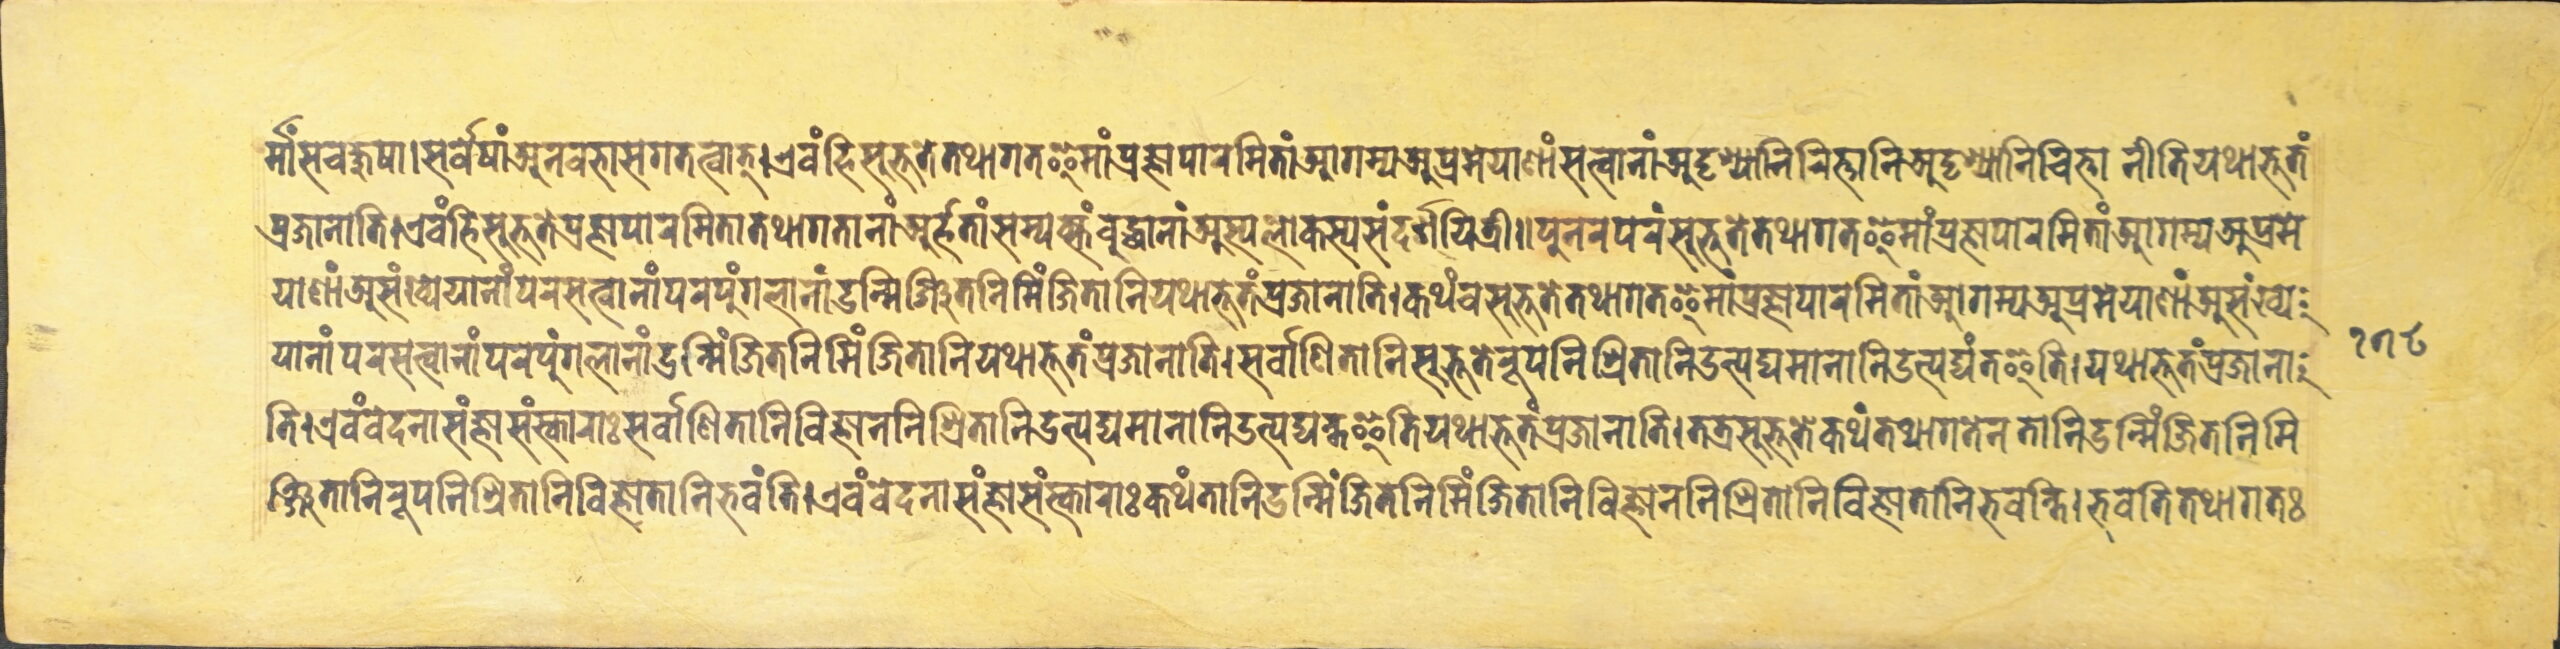 र्मांसचक्षुषा।सर्वेषांअनवभासगतत्वात्।एवंहिसुभुतेतथागतइमांप्रज्ञापारमितांआगम्यअप्रमेयाणांसत्वानांअदृश्यानिचित्तानिअदृश्यानिचित्तानीतियथाभुतं
प्रजानाति।एवंहिसुभुतेप्रज्ञापारमितातथागतानांअर्हतांसम्यक्संबुद्धानांअस्यलोकस्यसंदर्शयित्री॥पुनरपरंसुभुतेतथागतइमांप्रज्ञापारमितांआगम्यअप्रमे
याणांअसंख्येयानांपरसत्वानांपरपुंगलानांउन्मिञ्जितनिमिंजितानियथाभुतंप्रजानाति।कथंचसुभुतेतथागतइमांप्रज्ञापारमितांआगम्यअप्रमेयाणांअसंख्ये
यानांपरसत्वानांपरपुंगलानांउन्मिंजितनिमिंजितानियथाभुतंप्रजानाति।सर्वाणितानिसुभुतेरूपनिश्रितानिउत्पद्यमानानिउत्पद्यंतइति।यथाभुतंप्रजाना
ति।एवंवेदनासंज्ञासंस्काराःसर्वाणितानिविज्ञाननिश्रितानिउत्पद्यमानानिउत्पद्यन्तइतियथाभुतंप्रजानाति।तत्रसुभुतेकथंतथागतेनतानिउन्मिंजितनिमि
ञ्जितानिरूपनिश्रितानिविज्ञातानिभवंति।एवंवेदनासंज्ञासंस्काराःकथंतानिउन्मिंजितनिमिंजितानिविज्ञाननिश्रितानिविज्ञातानिभवन्ति।भवतितथागतः